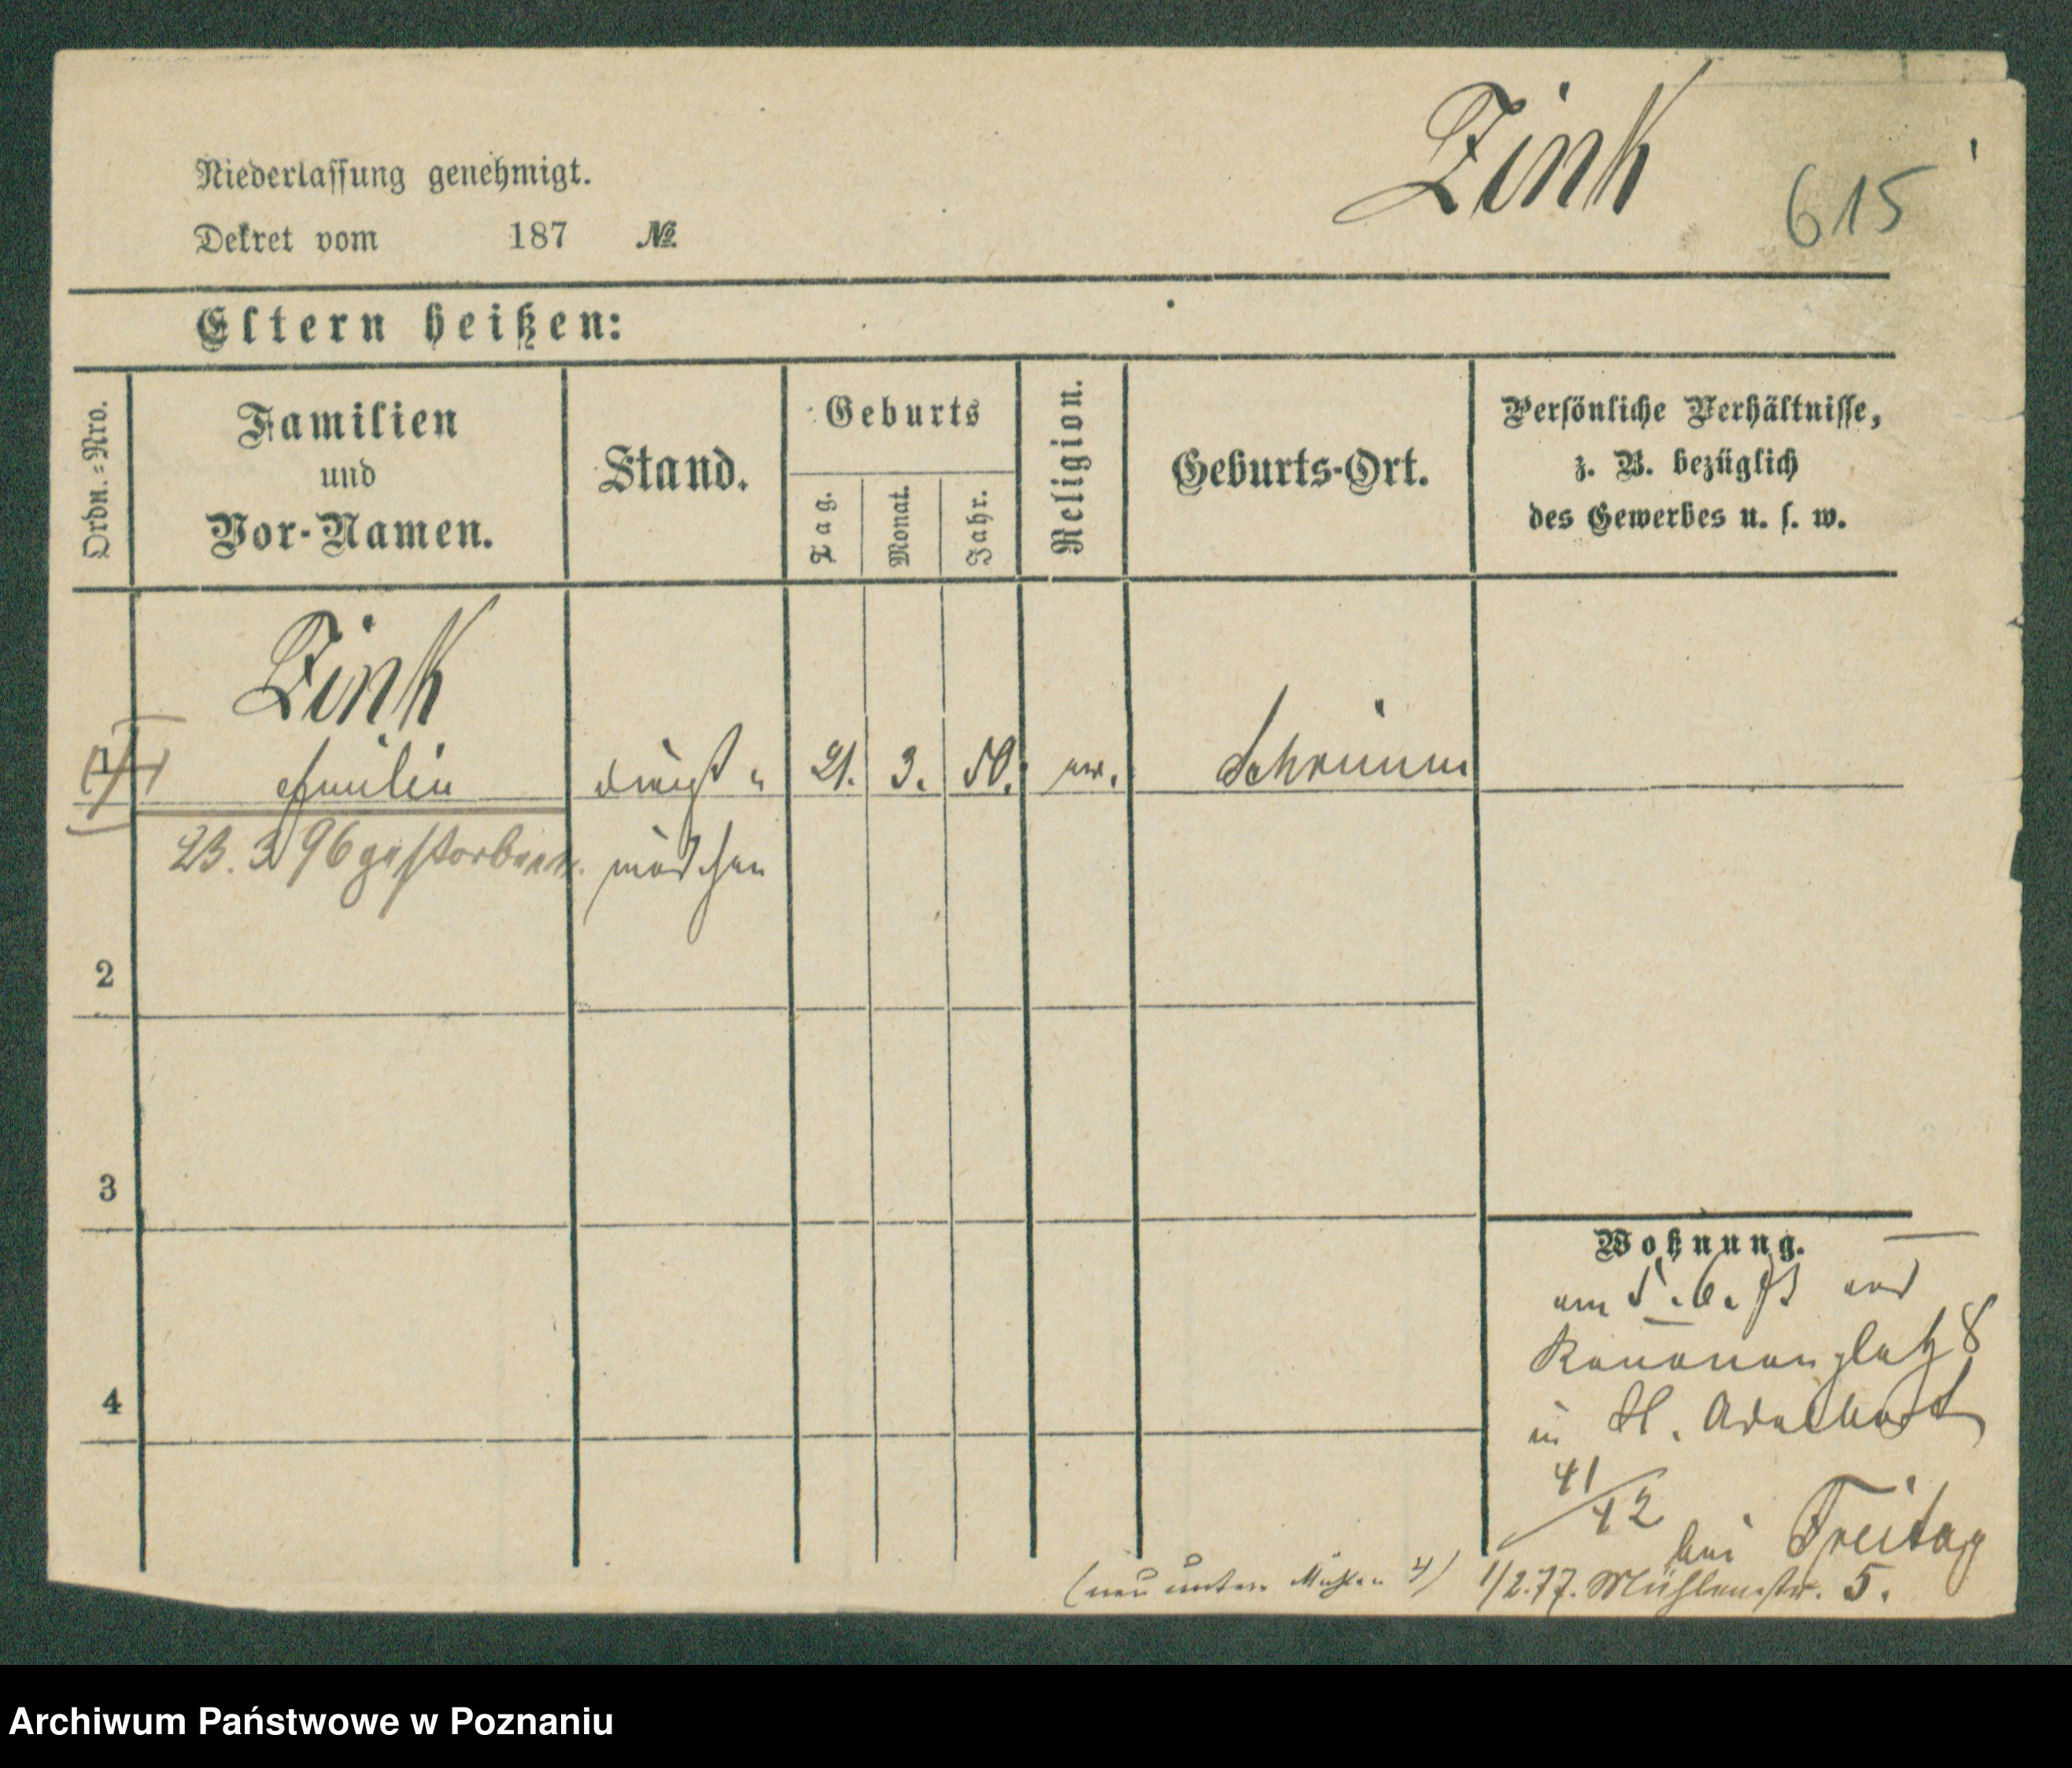 Zink
615
Niederlassung genehmigt.
Dekret vom 187 №
Eltern heißen:
Ordn.=Nro.
Familien
und
Vor-Namen.
Stand.
Geburts
Tag.
Monat.
Jahr.
Religion.
Geburts-Ort.
Persönliche Verhältnisse,
z. B. bezüglich
des Gewerbes u. s. w.
Zink
1
Emilie
Dienst„
21. 3. 50. ev. Schrimm
23. 3 96 gestorben.
mädchen
2
3
4
Wohnung.
am 5.6. und
Kanonenplatz 8
in St. Adalbert
41/42
bei Freitag
(neu untere Mühlen 4) 1/2.77. Mühlenstr. 5.
Archiwum Państwowe w Poznaniu